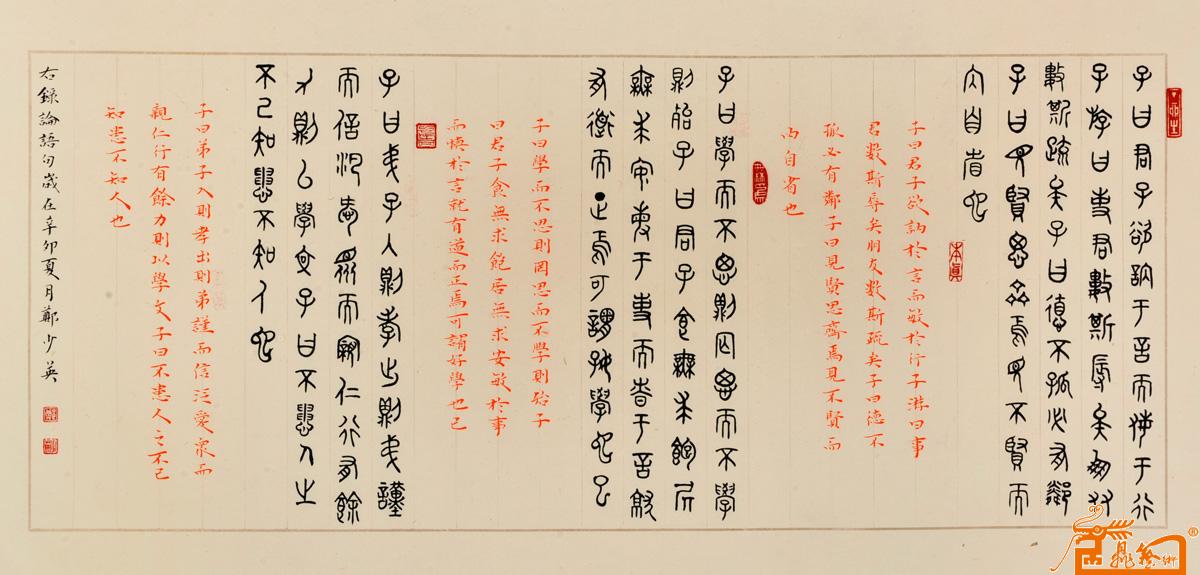 子曰君子欲訥于言而敏于行
子游曰事君數斯辱矣朋友
數斯疏矣子曰德不孤必有鄰
子曰見賢思齊焉見不賢而
內自省也
本真
子曰君子欲訥於言而敏於行子游曰事
君數斯辱矣朋友數斯疏矣子曰德不
孤必有鄰子曰見賢思齊焉見不賢而
內自省也
子曰學而不思則罔思而不學
則殆子曰君子食無求飽居
無求安敏于事而慎于言就
有道而正焉可謂好學也已
子曰學而不思則罔思而不學則殆子
曰君子食無求飽居無求安敏於事
而慎於言就有道而正焉可謂好學也已
子曰弟子入則孝出則弟謹
而信汎愛眾而親仁行有餘
力則以學文子曰不患人之
不己知患不知人也
子曰弟子入則孝出則弟謹而信泛愛眾而
親仁行有餘力則以學文子曰不患人之不己
知患不知人也
右錄論語句歲在辛卯夏月鄭少英